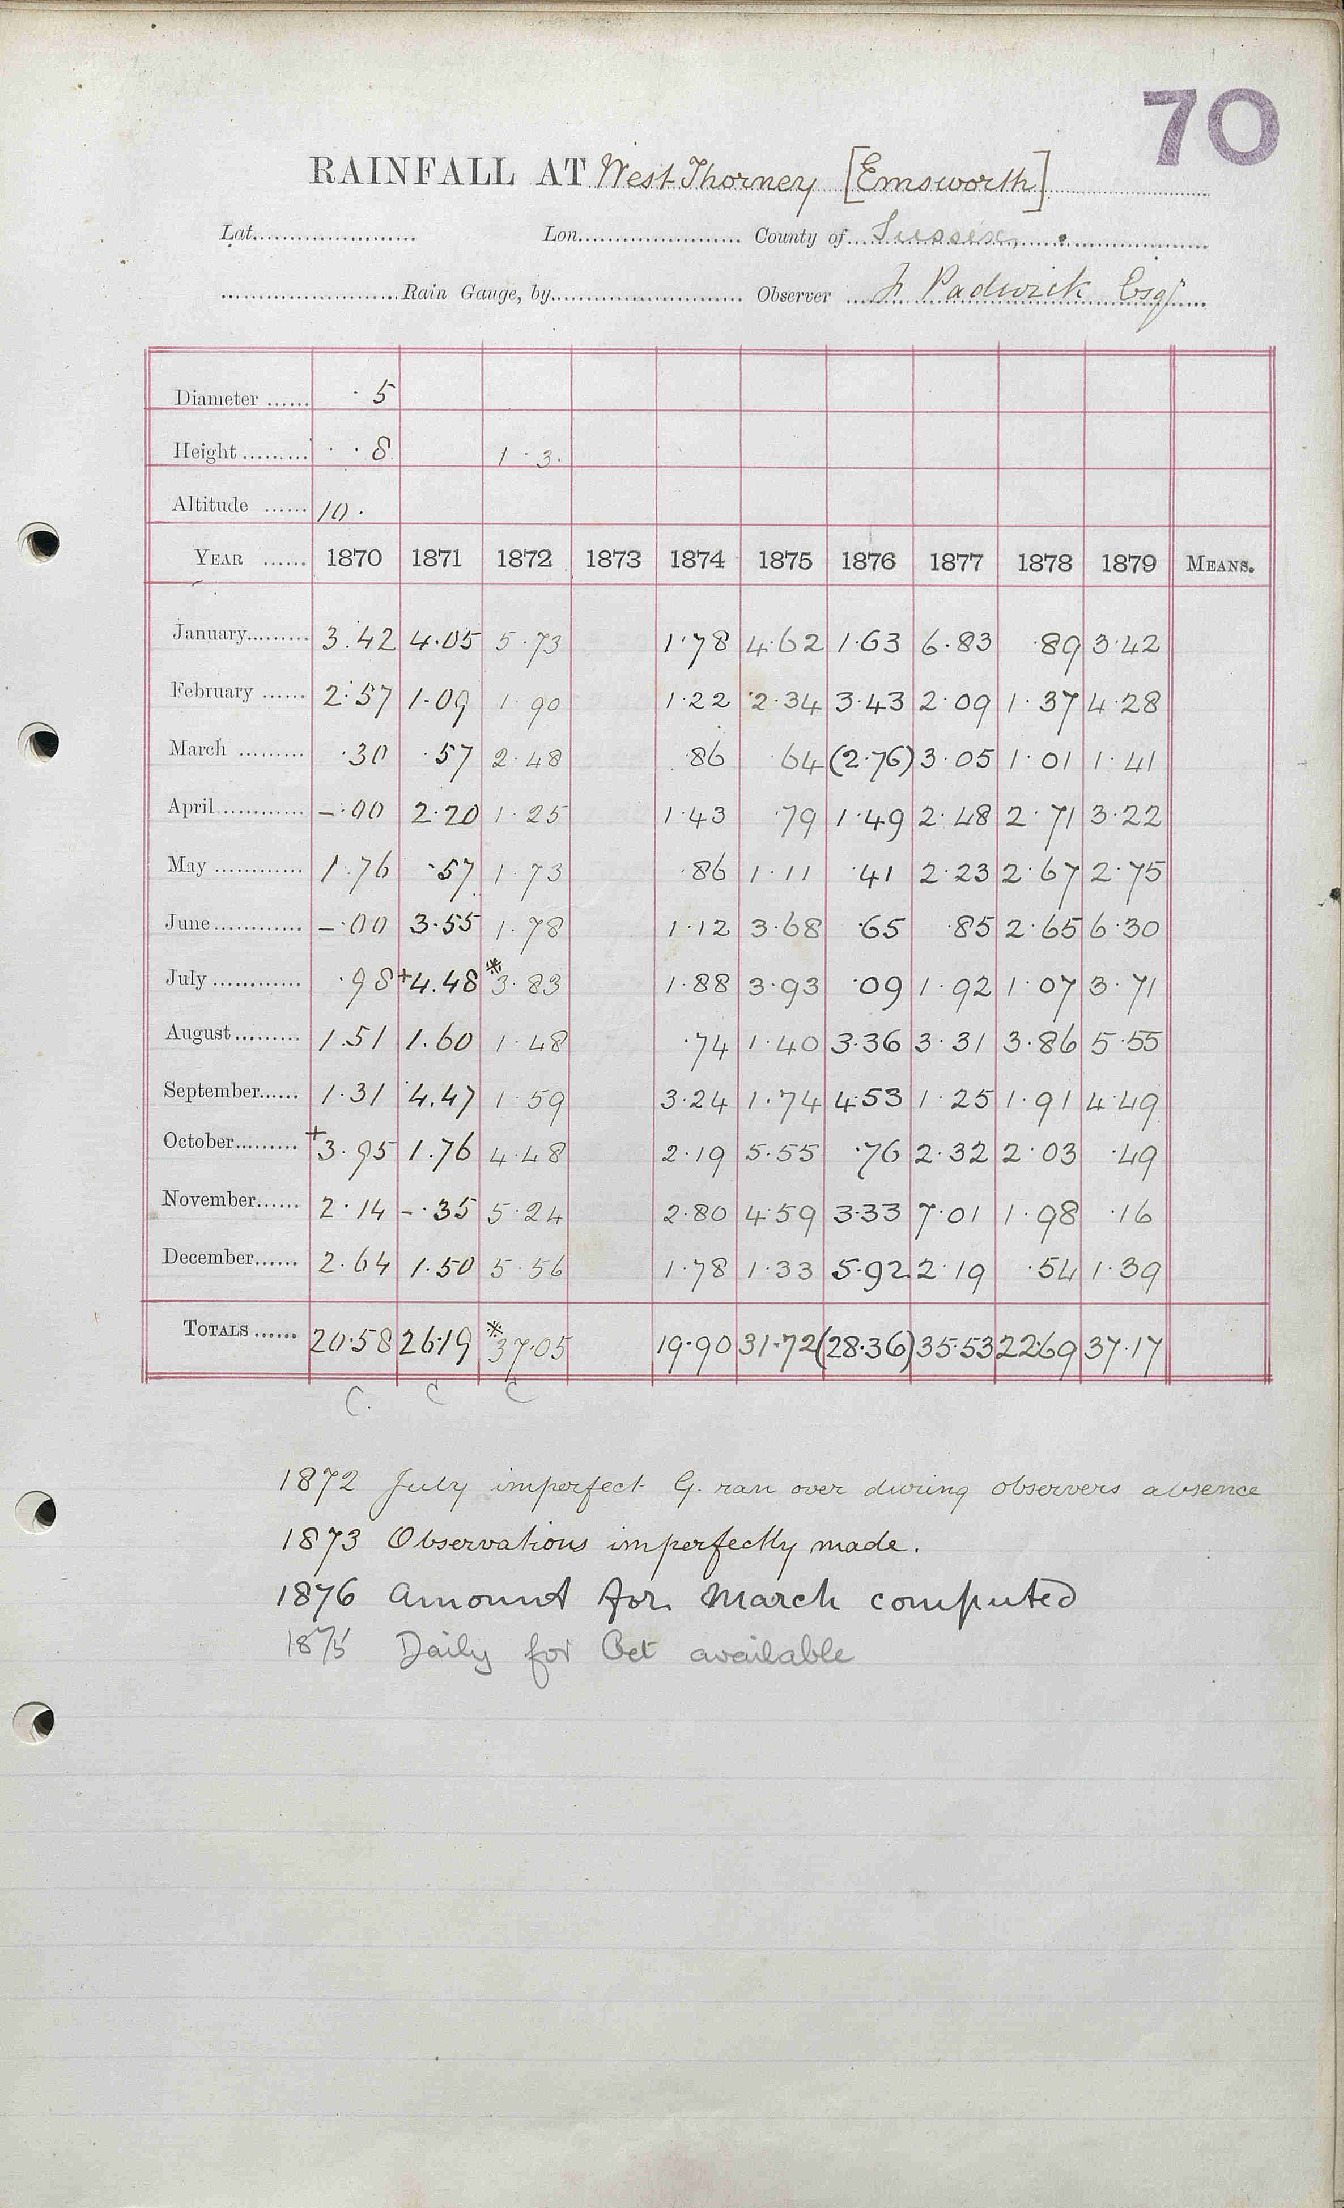 70
RAINFALL AT West Thorney [Emsworth]
Lat. Lon. County of Sussex
Rain Gauge, by Observer Padwick Esqr
Diameter 5
Height 8 1 3
Altitude 10
YEAR 1870 1871 1872 1873 1874 1875 1876 1877 1878 1879 MEANS.
January 3.42 4.05 5.73 1.78 4.62 1.63 6.83 .89 3.42
February 2.57 1.09 1.90 1.22 2.34 3.43 2.09 1.37 4.28
March .30 .57 2.48 .86 .64 (2.76) 3.05 1.01 1.41
April -.00 2.20 1.25 1.43 .79 1.49 2.48 2.71 3.22
May 1.76 .57 1.73 .86 1.11 .41 2.23 2.67 2.75
June -.00 3.55 1.78 1.12 3.68 .65 .85 2.65 6.30
July .98 +4.48 *3.83 1.88 3.93 .09 1.92 1.07 3.71
August 1.51 1.60 1.48 .74 1.40 3.36 3.31 3.86 5.55
September 1.31 4.47 1.59 3.24 1.74 4.53 1.25 1.91 4.49
October +3.95 1.76 4.48 2.19 5.55 .76 2.32 2.03 .49
November 2.14 -.35 5.24 2.80 4.59 3.33 7.01 1.98 .16
December 2.64 1.50 5.56 1.78 1.33 5.92 2.19 .54 1.39
TOTALS 20.58 26.19 *37.05 19.90 31.72 (28.36) 35.53 22.69 37.17
C. C C
1872 July imperfect G. ran over during observers absence
1873 Observations imperfectly made.
1876 Amount for March computed
1875 Daily for Oct available